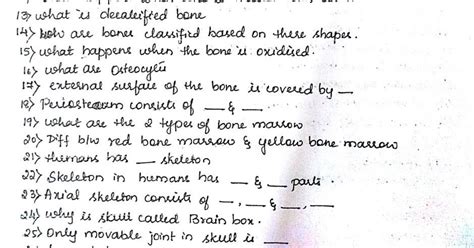 13) what is decalcified bone
14) How are bones classified based on there shapes.
15) what happens when the bone is oxidised.
16) what are Osteocytes
17) external surface of the bone is covered by —
18) Periosteum consists of — & —
19) what are the 2 types of bone marrow
20) Diff b/w red bone marrow & yellow bone marrow
21) Humans has — skeleton
22) Skeleton in humans has — & — parts.
23) Axial skeleton consists of —, — & —, —
24) why is skull called Brain box.
25) Only movable joint in skull is —